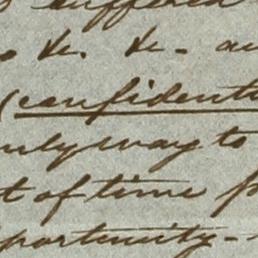 suffered
&c. &c - an
(confidenti
nly way to
t of time
portunity -